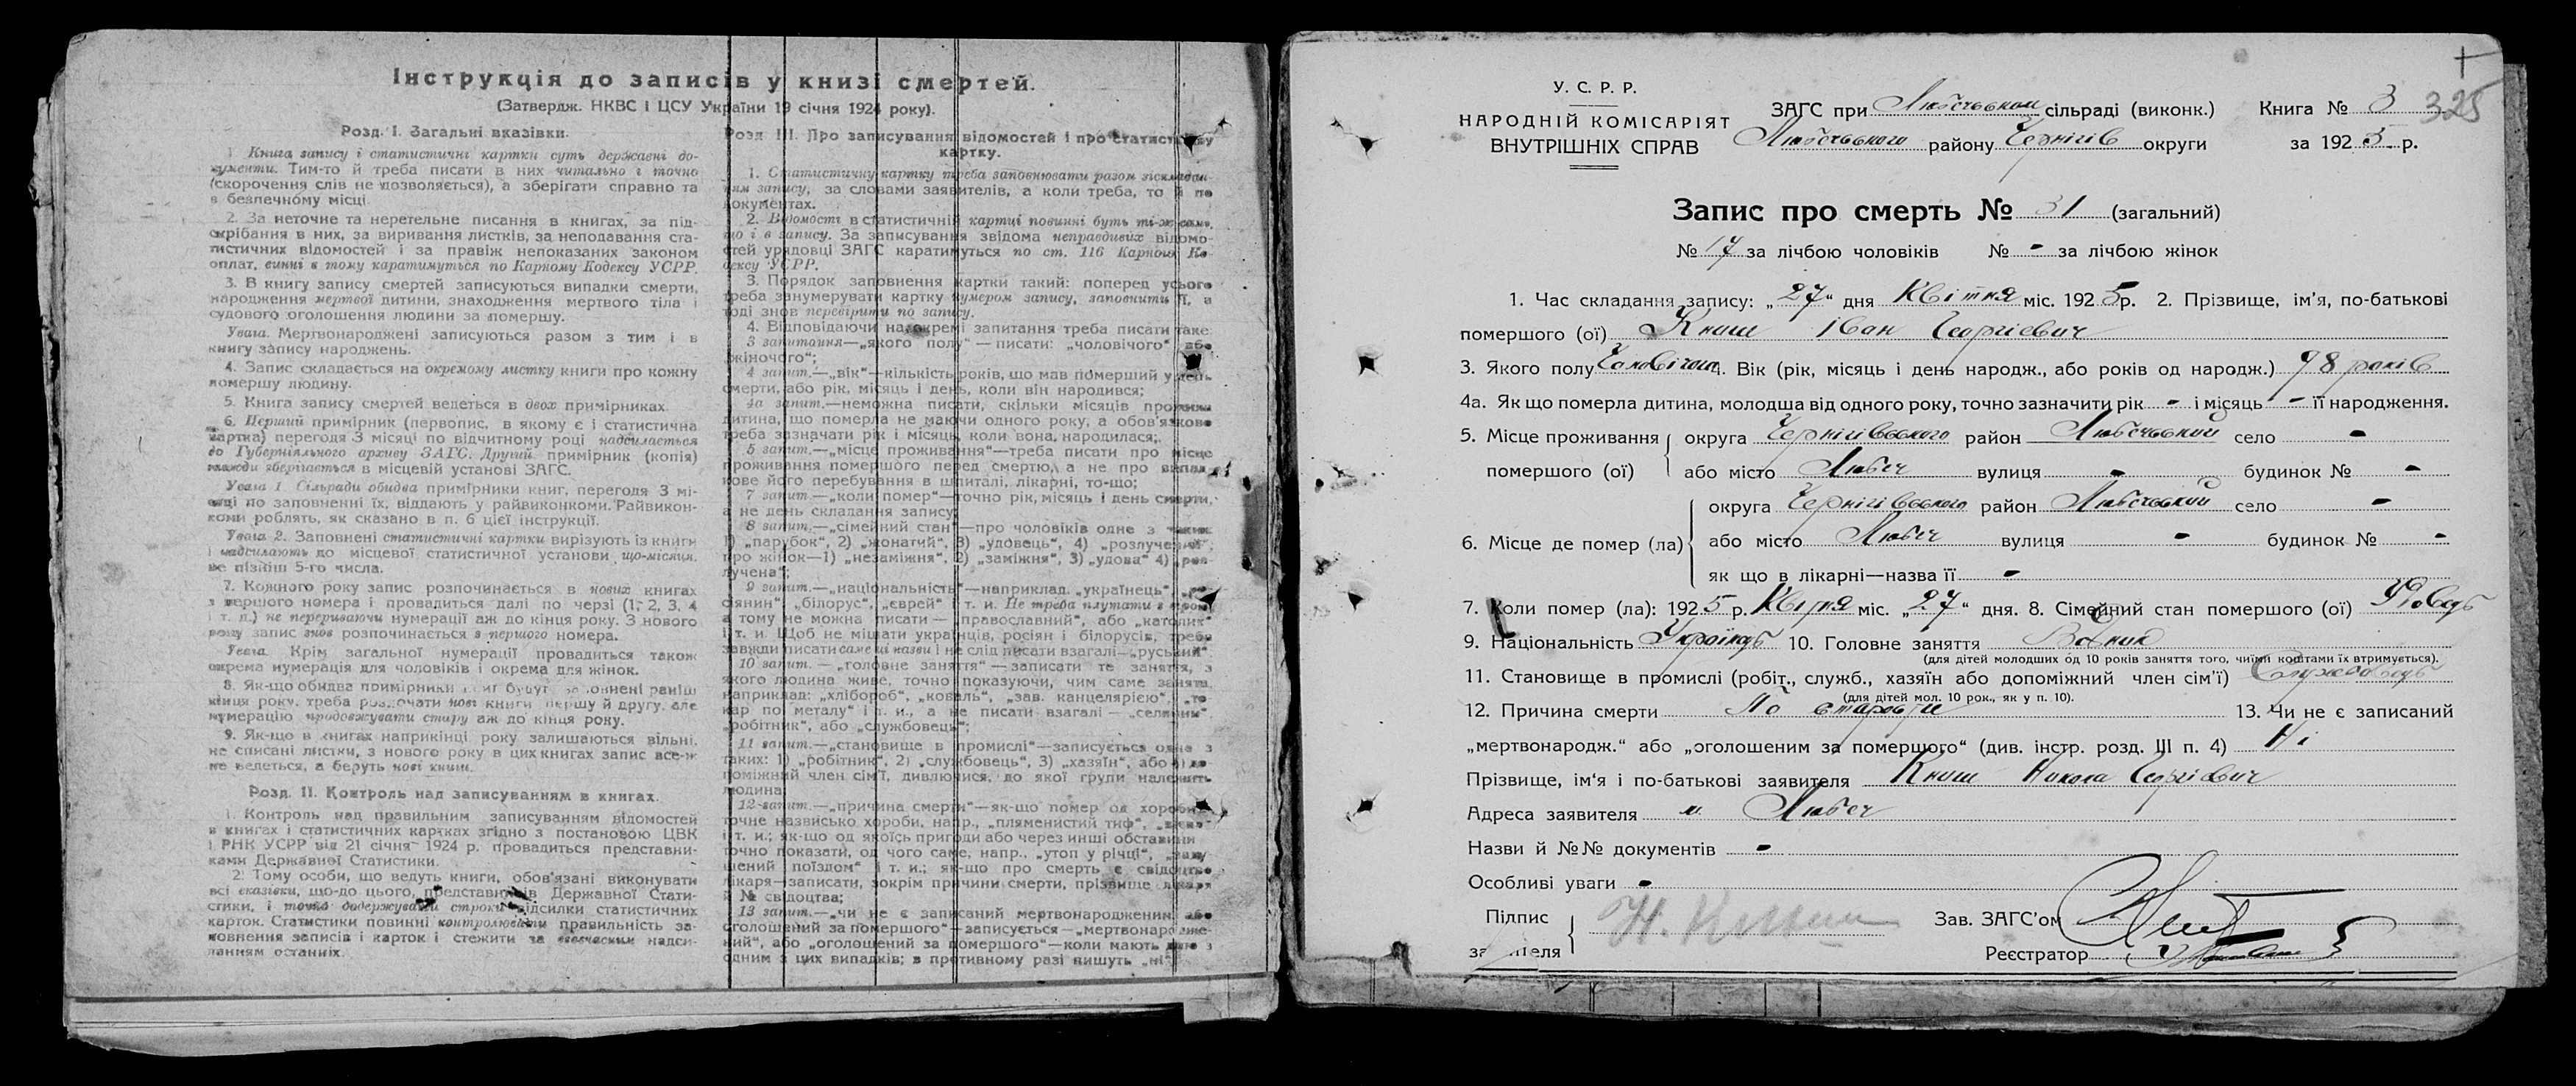 Інструкція до записів у книзі смертей.
(Затвердж. НКВС і ЦСУ України 19 січня 1924 року).
Розд. I. Загальні вказівки.
1. Книга запису і статистичні картки суть державні до-
кументи. Тим-то й треба писати в них читально і точно
(скорочення слів не дозволяється), а зберігати справно та
в безпечному місці.
2. За неточне та неретельне писання в книгах, за під-
скрібання в них, за виривання листків, за неподавання ста-
тистичних відомостей і за правіж непоказаних законом
оплат, винні в тому каратимуться по Карному Кодексу УСРР.
3. В книгу запису смертей записуються випадки смерти,
народження мертвої дитини, знаходження мертвого тіла і
судового оголошення людини за помершу.
Увага. Мертвонароджені записуються разом з тим і в
книгу запису народжень.
4. Запис складається на окремому листку книги про кожну
помершу людину.
5. Книга запису смертей ведеться в двох примірниках.
6. Перший примірник (первопис, в якому є і статистична
картка) перегодя 3 місяці по відчитному році надсилається
до Губерніяльного архиву ЗАГС. Другий примірник (копія)
зберігається в місцевій установі ЗАГС.
Увага 1. Сільради обидва примірники книг, перегодя 3 мі-
сяці по заповненні їх, віддають у райвиконкоми. Райвикон-
коми роблять, як сказано в п. 6 цієї інструкції.
Увага 2. Заповнені статистичні картки вирізують із книги
і надсилають до місцевої статистичної установи що-місяця,
не пізніш 5-го числа.
7. Кожного року запис розпочинається в нових книгах
з першого номера і провадиться далі по черзі (1, 2, 3, 4
і т. д.) не перериваючи нумерації аж до кінця року. З нового
року запис знов розпочинається з першого номера.
Увага. Крім загальної нумерації провадиться також
окрема нумерація для чоловіків і окрема для жінок.
8. Як-що обидва примірники книг будут заповнені раніш
кінця року, треба розпочати нові книги першу й другу, але
нумерацію продовжувати стару аж до кінця року.
9. Як-що в книгах наприкінці року залишаються вільні,
не списані листки, з нового року в цих книгах запис все-ж
не ведеться, а беруть нові книги.
Розд. II. Контроль над записуванням в книгах.
1. Контроль над правильним записуванням відомостей
в книгах і статистичних картках згідно з постановою ЦВК
і РНК УСРР від 21 січня 1924 р. провадиться представни-
ками Державної Статистики.
2. Тому особи, що ведуть книги, обов'язані виконувати
всі вказівки, що-до цього, представників Державної Стати-
стики, і точно додержувати строки відсилки статистичних
карток. Статистики повинні контролювати правильність за-
повнення записів і карток і стежити за своєчасним надси-
ланням останніх.
Розд. III. Про записування відомостей і про статистичну
картку.
1. Статистичну картку треба заповнювати разом зіскладан-
ням запису, за словами заявителів, а коли треба, то й по
документах.
2. Відомості в статистичній картці повинні буть ті-ж самі,
що і в запису. За записування звідома неправдивих відомо-
стей урядовці ЗАГС каратимуться по ст. 116 Карного Ко-
дексу УСРР.
3. Порядок заповнення картки такий: поперед усього
треба занумерувати картку нумером запису, заповнити її, а
тоді знов перевірити по запису.
4. Відповідаючи на окремі запитання треба писати таке:
3 запитання—„якого полу“ — писати: „чоловічого“ або
„жіночого“;
4 запит.—„вік“—кількість років, що мав померший у день
смерти, або рік, місяць і день, коли він народився;
4а запит.—неможна писати, скільки місяців прожила
дитина, що померла не маючи одного року, а обов'язково
треба зазначати рік і місяць, коли вона народилася;
5 запит.—„місце проживання“—треба писати про місце
проживання помершого перед смертю, а не про випад-
кове його перебування в шпиталі, лікарні, то-що;
7 запит.—„коли помер“—точно рік, місяць і день смерти,
а не день складання запису;
8 запит.—„сімейний стан“—про чоловіків одне з таких
1) „парубок“, 2) „жонатий“, 3) „удовець“, 4) „розлучений“,
про жінок—1) „незаміжня“, 2) „заміжня“, 3) „удова“ 4) „роз-
лучена“;
9 запит.—„національність“—наприклад, „українець“, „ро-
сіянин“, „білорус“, „єврей“ і т. и. Не треба плутати з
а тому не можна писати — „православний“, або „католик“
і т. и. Щоб не мішати українців, росіян і білорусів, треба
завжди писати саме ці назви і не слід писати взагалі—„руський“.
10 запит. — „головне заняття“ — записати те заняття, з
якого людина живе, точно показуючи, чим саме занята,
наприклад: „хлібороб“, „коваль“, „зав. канцелярією“, „то-
кар по металу“ і т. и., а не писати взагалі — „селянин“,
„робітник“, або „службовець“;
11 запит.—„становище в промислі“—записується одне з
таких: 1) „робітник“, 2) „службовець“, 3) „хазяїн“, або 4) до-
поміжний член сім'ї, дивлючися, до якої групи належить
людина.
12 запит.—„причина смерти“—як-що помер од хороби
точне назвисько хороби, напр., „пляменистий тиф“,
і т. и.; як-що од якоїсь пригоди або через инші обставини
точно показати, од чого саме, напр., „утоп у річці“,
шений поїздом“ і т. и.; як-що про смерть є свідоцтво
лікаря—записати, окрім причини смерти, прізвище лікаря
й № свідоцтва;
13 запит.—„чи не є записаний мертвонародженим або
оголошений за помершого“—записується—„мертвонародже-
ний“, або „оголошений за помершого“—коли мають діло з
одним з цих випадків; в противному разі пишуть „ні“.
325
У. С. Р. Р.
НАРОДНІЙ КОМІСАРІЯТ
ВНУТРІШНІХ СПРАВ
ЗАГС при Любечьском сільраді (виконк.) Книга № 3
Любечьского району Чернігів округи за 1925 р.
Запис про смерть № 31 (загальний)
№ 17 за лічбою чоловіків № - за лічбою жінок
1. Час складання запису: „27“ дня Квітня міс. 1925 р. 2. Прізвище, ім'я, по-батькові
помершого (ої) Книш Іван Георгієвич
3. Якого полу Чоловічого 4. Вік (рік, місяць і день народж., або років од народж.) 98 років
4а. Як що померла дитина, молодша від одного року, точно зазначити рік - і місяць - її народження.
5. Місце проживання помершого (ої) округа Чернігівського район Любечьский село -
або місто Любеч вулиця - будинок № -
6. Місце де помер (ла) округа Чернігівського район Любечьский село -
або місто Любеч вулиця - будинок № -
як що в лікарні—назва її -
7. Коли помер (ла): 1925 р. Квітня міс. „27“ дня. 8. Сімейний стан помершого (ої) Удовець
9. Національність Українець 10. Головне заняття
(для дітей молодших од 10 років заняття того, чиїми коштами їх втримується).
11. Становище в промислі (робіт., служб., хазяїн або допоміжний член сім'ї) Службовець
(для дітей мол. 10 рок., як у п. 10).
12. Причина смерти По старости 13. Чи не є записаний
„мертвонародж.“ або „оголошеним за помершого“ (див. інстр. розд. III п. 4) Ні
Прізвище, ім'я і по-батькові заявителя Книш Никола Георгієвич
Адреса заявителя м. Любеч
Назви й №№ документів -
Особливі уваги -
Підпис заявителя Н. Книш
Зав. ЗАГС'ом
Реєстратор